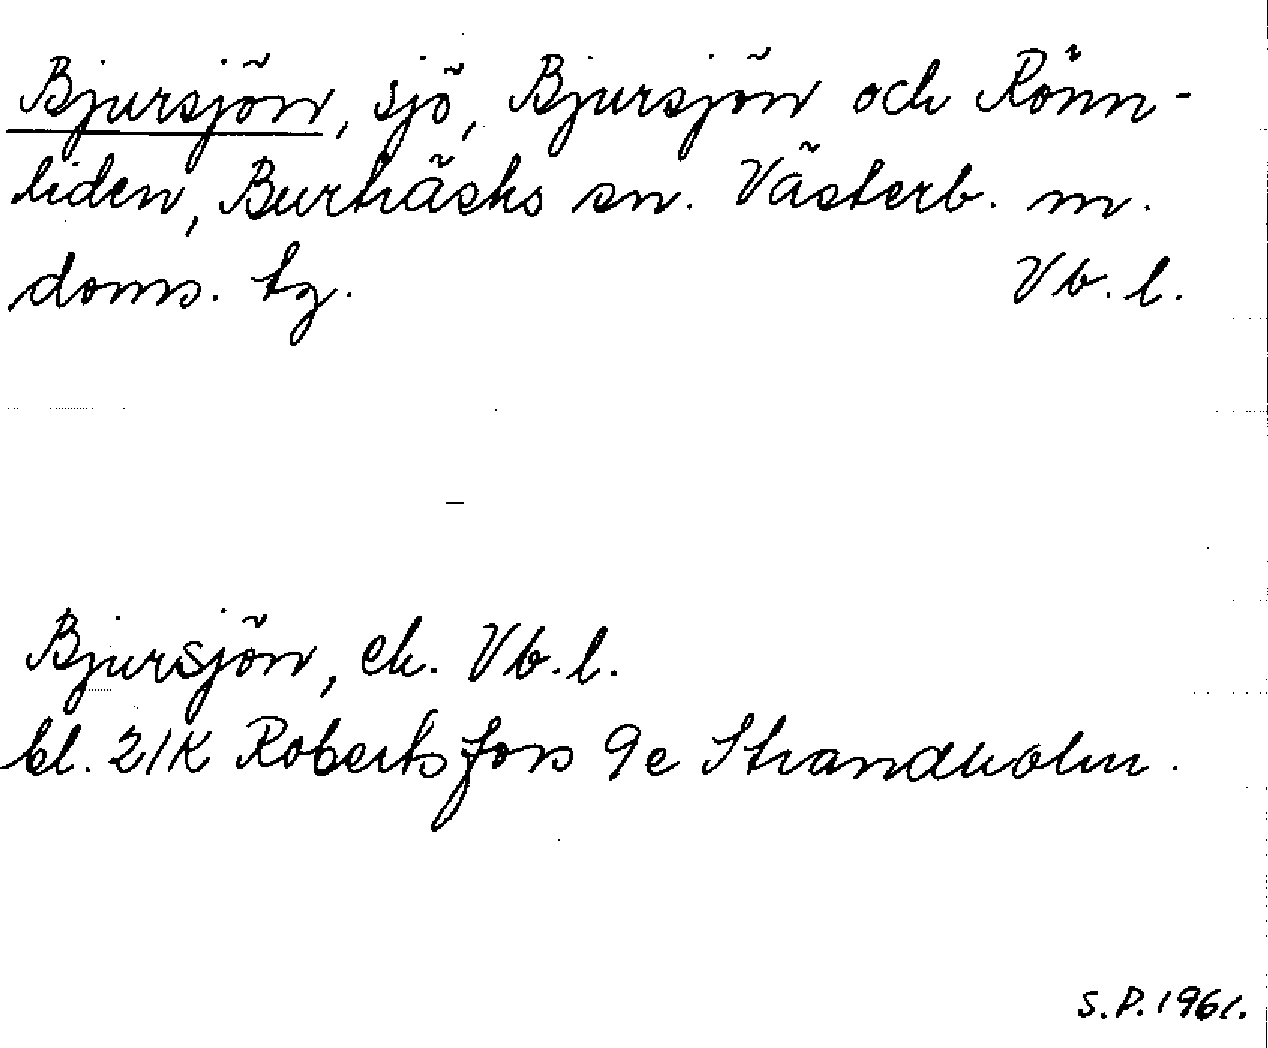 Bjursjön, sjö, Bjursjön och Rönn-
liden, Burträsks sn. Västerb. m.
doms. tg. Vb. l.
Bjursjön, ek. Vb. l.
bl. 21K Robertsfors 9e Strandholm.
S.P. 1961.